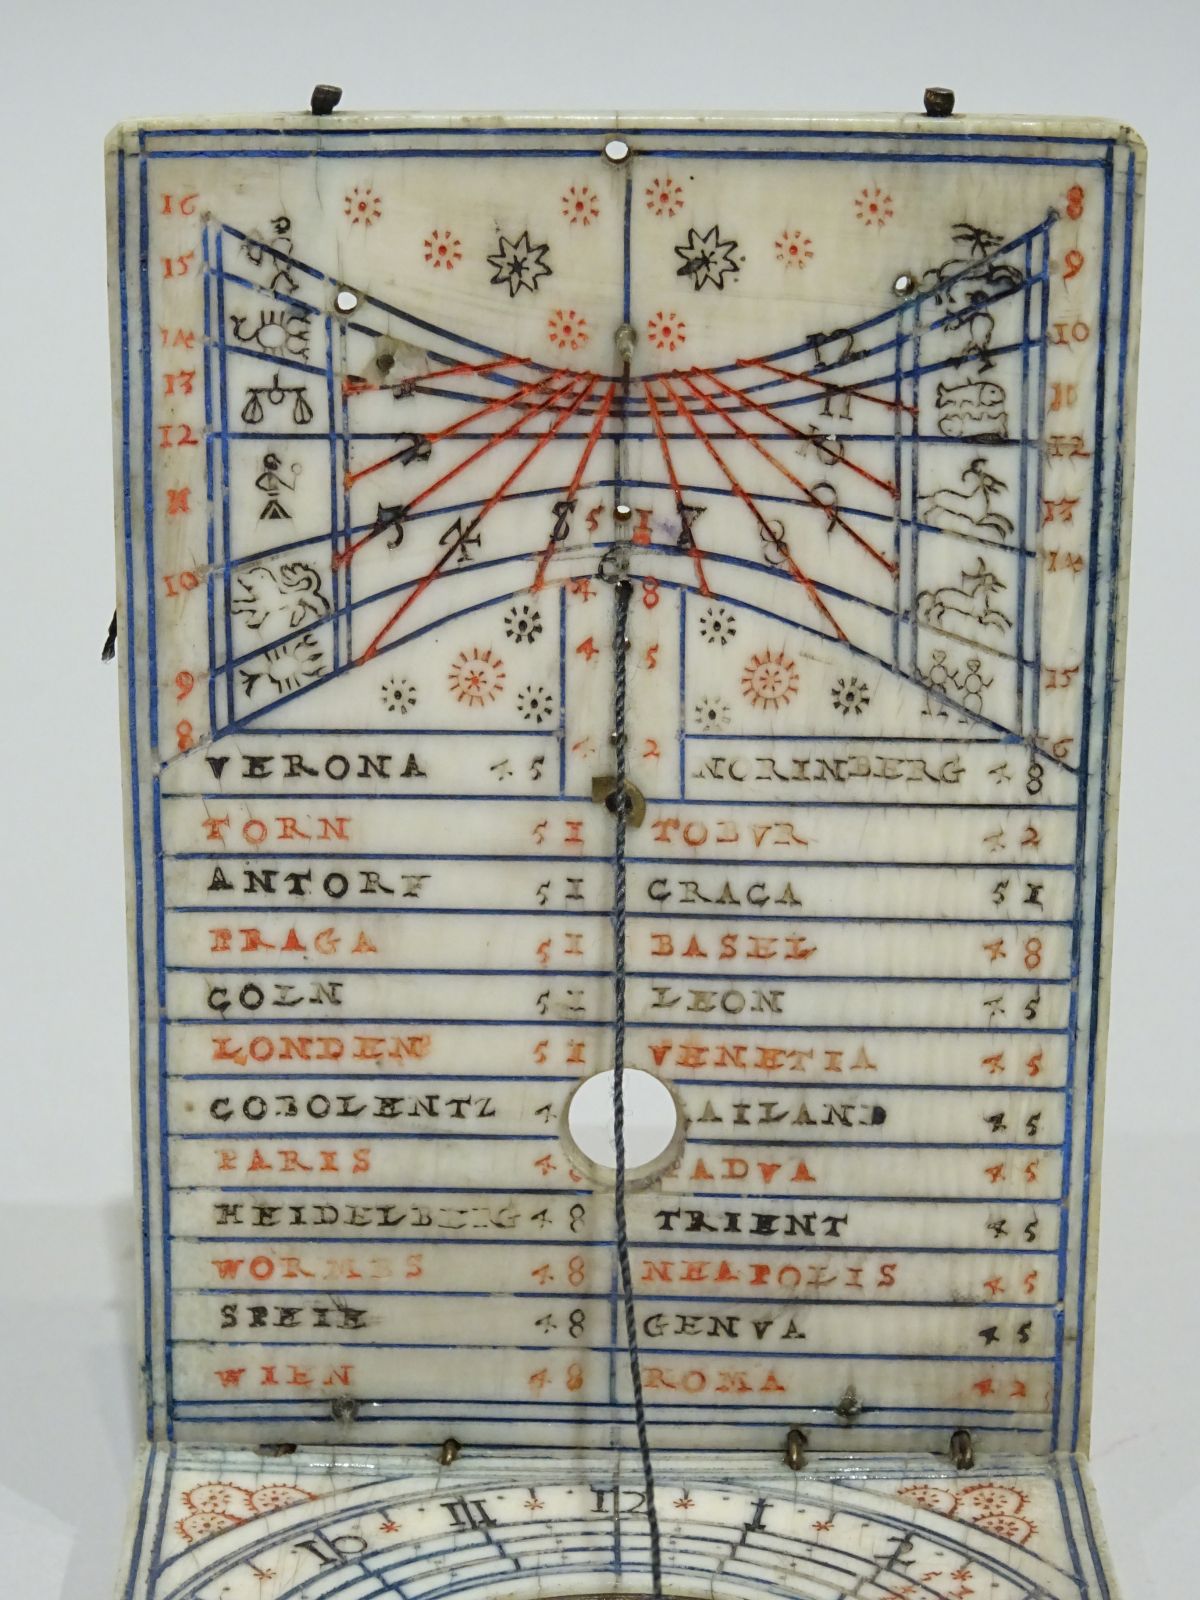 16 8
15 9
14 10
13 11
12 12
11 13
10 14
9 15
8 16
12
1 11
2 10
3 9
4 8
5 7
6
51
48
45
42
VERONA 45 NORINBERG 48
TORN 51 TOBVR 42
ANTORF 51 CRACA 51
PRAGA 51 BASEL 48
COLN 51 LEON 45
LONDEN 51 VENETIA 45
COBOLENTZ 4 AILAND 45
PARIS 48 PADVA 45
HEIDELBERG 48 TRIENT 45
WORMES 48 NEAPOLIS 45
SPEIE 48 GENVA 45
WIEN 48 ROMA 42
10 11 12 1 2